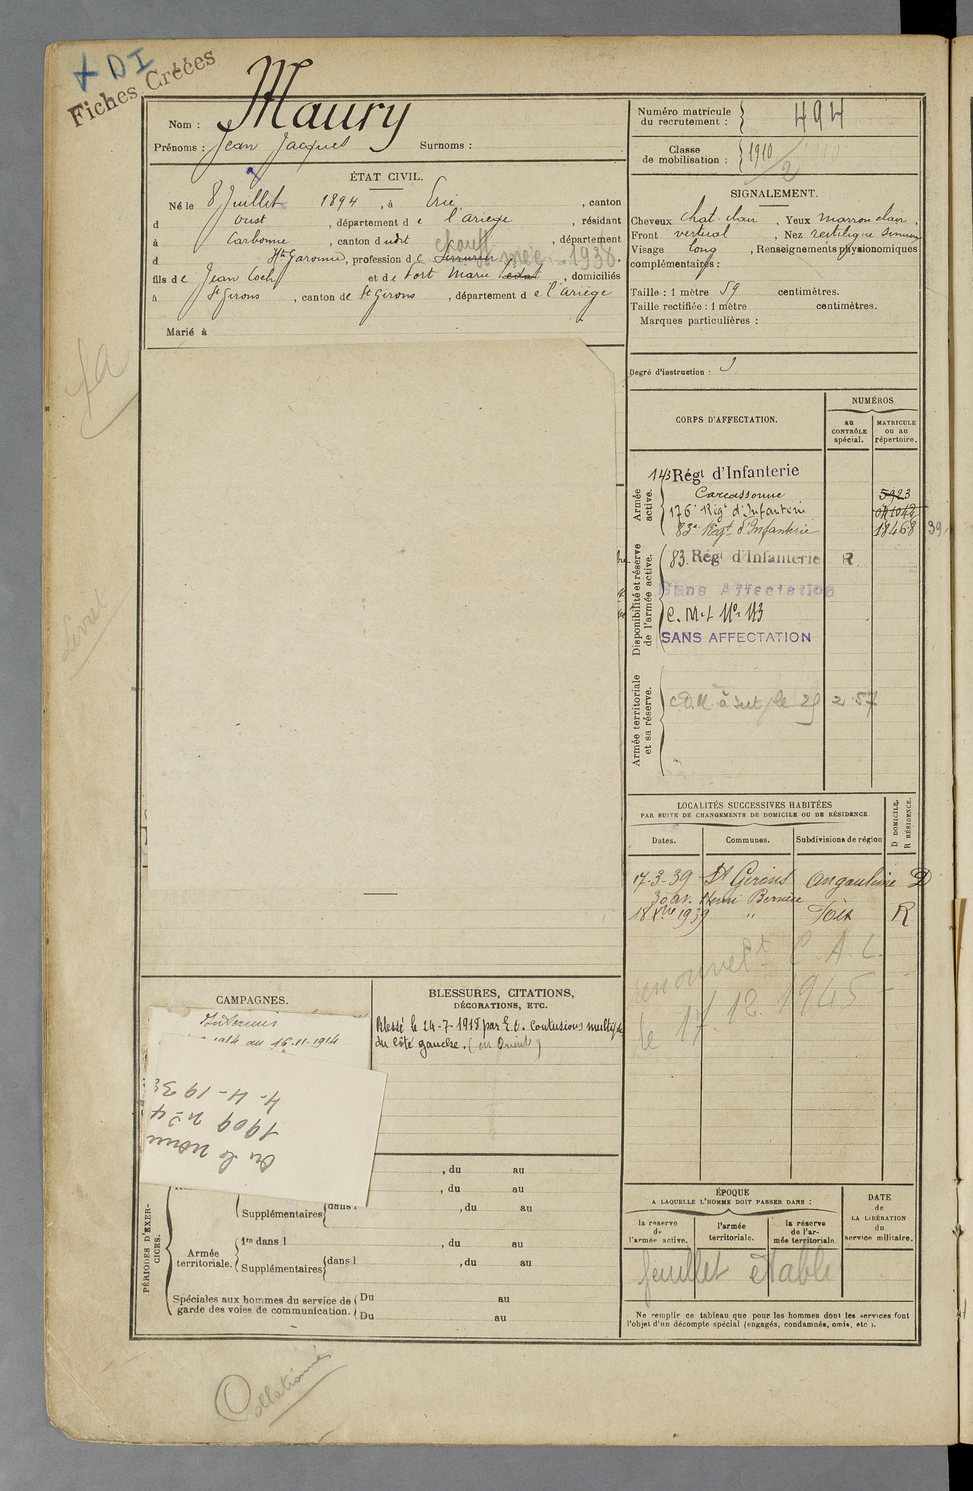 + DI
Fiches Créées
Nom : Maury
Prénoms : Jean Jacques Surnoms :
Numéro matricule
du recrutement : 494
Classe
de mobilisation : 1910
2
ÉTAT CIVIL.
Né le 8 Juillet 1894, à Ercé, canton
d Oust, département de l'Ariège, résidant
à Carbonne, canton dudit, département
d Hte Garonne, profession de
fils de Jean et de Fort Marie, domiciliés
à St Girons, canton de St Girons, département de l'Ariège
Marié à
SIGNALEMENT.
Cheveux chat. clair. Yeux marron clair,
Front vertical, Nez rectiligne
Visage long, Renseignements physionomiques
complémentaires :
Taille : 1 mètre 59 centimètres.
Taille rectifiée : 1 mètre centimètres.
Marques particulières :
Degré d'instruction : 3
CORPS D'AFFECTATION.
NUMÉROS
au
CONTRÔLE
spécial.
MATRICULE
ou au
répertoire.
Armée
active.
143 Régt d'Infanterie
Carcassonne 5923
176e Régt d'Infanterie
83e Régt d'Infanterie 18468
Disponibilité et réserve
de l'armée active.
83. Régt d'Infanterie R
Sans Affectation
C. M. I. No 113
SANS AFFECTATION
Armée territoriale
et sa réserve.
LOCALITÉS SUCCESSIVES HABITÉES
PAR SUITE DE CHANGEMENTS DE DOMICILE OU DE RÉSIDENCE
Dates.
Communes.
Subdivisions de région
D DOMICILE.
R RÉSIDENCE.
17-3-39 St Girons D
18 Xbre 1939 " Foix R
renouvelt C. A. C.
le 17. 12. 1945
CAMPAGNES.
au 16-11-1914
4-4-193
1909 n° 4
BLESSURES, CITATIONS,
DÉCORATIONS, ETC.
Blessé le 24-7-1918 par E.O. Contusions multiples
du côté gauche. (en Orient)
, du au
, du au
Supplémentaires dans l , du au
PÉRIODES D'EXER-
CICES.
Armée
territoriale.
1re dans l , du au
Supplémentaires dans l , du au
Spéciales aux hommes du service de
garde des voies de communication.
Du au
Du au
ÉPOQUE
A LAQUELLE L'HOMME DOIT PASSER DANS :
la réserve
de
l'armée active.
l'armée
territoriale.
la réserve
de l'ar-
mée territoriale.
DATE
de
LA LIBÉRATION
du
service militaire.
feuillet établi
Ne remplir ce tableau que pour les hommes dont les services font
l'objet d'un décompte spécial (engagés, condamnés, omis, etc.).
Livret
Collationné